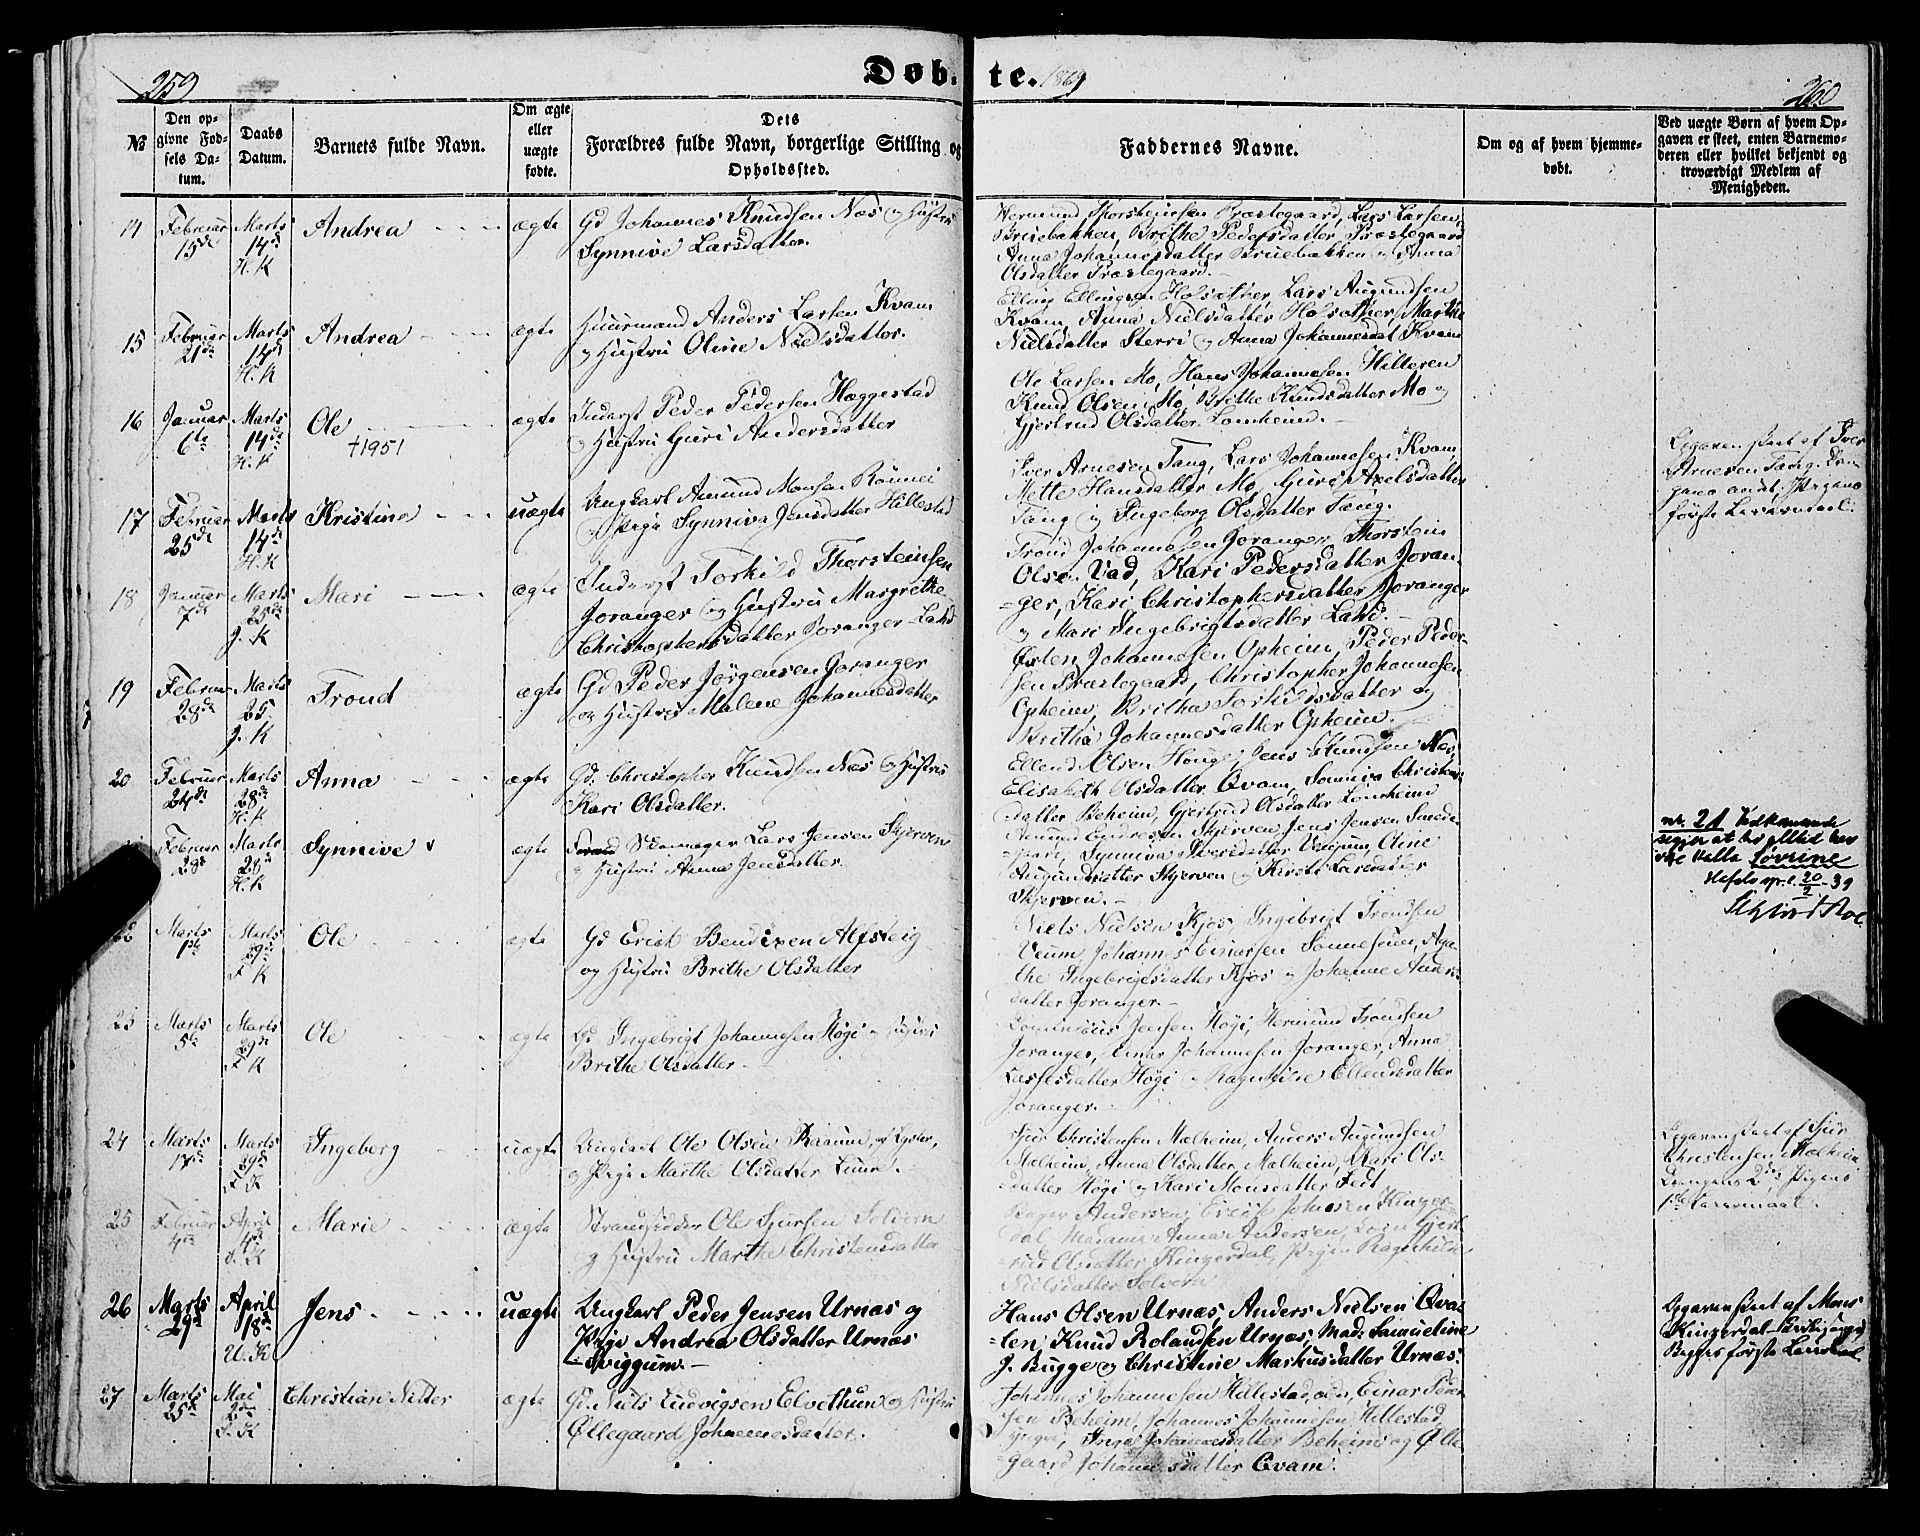 259
Døb-
te. 1869
260
№
Den opgivne Fødsels Datum.
Daabs Datum.
Barnets fulde Navn.
Om ægte eller uægte fødte.
Dets
Forældres fulde Navn, borgerlige Stilling og
Opholdssted.
Faddernes Navne.
Om og af hvem hjemmedøbt.
Ved uægte Børn af hvem Opgaven er skeet, enten Barnemoderen eller hvilket bekjendt og troværdigt Medlem af Menigheden.
14
Februar 15de
Marts 14de
H. K
Andrea
ægte
Gd Johannes Knudsen Næs og Hustru
Synnive Larsdatter.
Hermund Thorsteinsen Præstegaard, Lars Larsen
Bruebakken, Brithe Pedersdatter Præstegaard
Anna Johannesdatter Bruebakken og Anna
Olsdatter Præstegaard.
15
Februar 21de
Marts 14de
H. K
Andrea
ægte
Huusmand Anders Larsen Kvam
og Hustru Oline Nielsdatter.
Elling Ellingsen Holsæther, Lars Augundsen
Kvam, Anna Nielsdatter Holsæther, Marthe
Nielsdatter Sterri og Anna Johannesdat Kvam
16
Januar 6te
Marts 14de
H. K
Ole
†1951
ægte
Inderst Peder Pedersen Hæggestad
og Hustru Guri Andersdatter
Ole Larsen Mo, Hans Johannesen Hilleren
Knud Olsen Mo, Brithe Knudsdatter Mo og
Gjertrud Olsdatter Lomheim.
17
Februar 25de
Marts 14de
H. K
Kristina
uægte
Ungkarl Amund Monsen Rønnei
og Pige Synniva Jensdatter Hillestad
Iver Arnesen Tang, Lars Johannesen Kvam,
Mette Hansdatter Mo, Guri Axelsdatter
Tang og Ingeborg Olsdatter Tang.
Opgaven skeet af Iver
Arnesen Tang.
første Leiermaal.
18
Januar 7de
Marts 25de
J. K
Mari
ægte
Inderst Torkild Thorsteinsen
Joranger og Hustru Margrethe
Christophersdatter Joranger-Lahd
Trond Johannesen Joranger, Thorstein
Olsen Vad, Kari Pedersdatter Joran-
ger, Kari Christophersdatter Joranger
og Mari Ingebrigtsdatter Lahd.
19
Februar 28de
Marts 25
J. K
Trond
ægte
Gd Peder Jørgensen Joranger
og Hustru Malene Johannesdatter
Østen Johannesen Opheim, Peder Peder-
sen Præstegaard, Christopher Johannesen
Opheim, Britha Torkildsdatter og
Britha Johannesdatter Opheim.
20
Februar 24de
Marts 28de
H. K
Anna
ægte
Gd. Christopher Knudsen Næs og Hustru
Kari Olsdatter.
Ellend Olsen Houge, Jens Knudsen Næs,
Elisabeth Olsdatter Qvam, Synniva Christens-
datter Beheim, Gjertrud Olsdatter Lomheim
Februar 29de
Marts 28de
H. K
Synnive
ægte
Skomager Lars Jensen Skjerven
og Hustru Anna Jensdatter
Amund Endresen Skjerven, Jens Jensen
Synniva Iversdatter Venjum, Oline
Augundsdatter Skjerven og Kirsti Larsdatter
Skjerven.
nr. 21 Vedkommende
sejer at ho alltid har
vke kalla Lovvine
20/2-39
22
Marts 1ste
Marts 29de
F K
Ole
ægte
Gd Erick Bendixen Alfsteig
og Hustru Brithe Olsdatter
Niels Nielsen Kjøs, Ingebrigt Trondsen
Veum, Johannes Einarsen Sønneseim, Aga-
the Ingebrigtsdatter Kjøs og Johanne Anders-
datter Joranger.
23
Marts 5te
Marts 29de
F K
Ole
ægte
Gd Ingebrigt Johannesen Høgi og Hustru
Brithe Olsdatter.
Dominicus Jensen Høgi, Hermund Trondsen
Joranger, Einar Johannesen Joranger, Anna
Lassesdatter Høgi og Ragnhilde Ellendsdatter
Joranger.
24
Marts 17de
Marts 29de
F K
Ingeberg
uægte
Ungkarl Ole Olsen Raaum, af Lyster,
og Pige Marthe Olsdatter Linne.
Sjur Christensen Malheim, Anders Augundsen
Malheim, Anna Olsdatter, Malheim, Kari Ols-
datter Høgi og Kari Monsdatter Fedt
Opgaven skeet af Sjur
Christensen Malheim
Drengens 2det, Pigens
1ste Leiermaal.
25
Februar 4de
April 4de
S. K
Marie
ægte
Strandsidder Ole Sjursen Solvorn
og Hustru Marthe Christensdatter
Bager Andersen, Erick Johnsen Kinger-
dal, Madame Anna Andersen, Gjert-
rud Olsdatter Kingerdal, Pigen Ragnhilde
Nielsdatter Solvorn
26
Marts 29de
April 18de
U. K
Jens
uægte
Ungkarl Peder Jensen Urnæs og
Pige Andrea Olsdatter Urnæs
Sviggum.
Hans Olsen Urnæs, Anders Nielsen Qva-
len, Knud Rolandsen Urnæs, Mad: Samueline
J. Bugge og Christine Markusdatter Urnæs.
Opgaven skeet af Mons
Kingerdal
Begges første Leiermaal.
27
Marts 25de
Mai 2den
S. K
Christian Nitter
ægte
Gd. Niels Ludvigsen Elvethun og Hustru
Øllegaard Johannesdatter.
Johannes Johannesen Hillestad, Einar Peder-
sen Beheim, Johannes Johannesen Hillestad,
yngre, Inga Johannesdatter Beheim og Ølle-
gaard Johannesdatter Qvam.